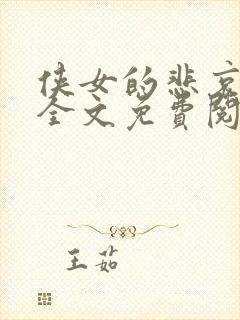 侠女的悲哀
全文免费阅
王茹